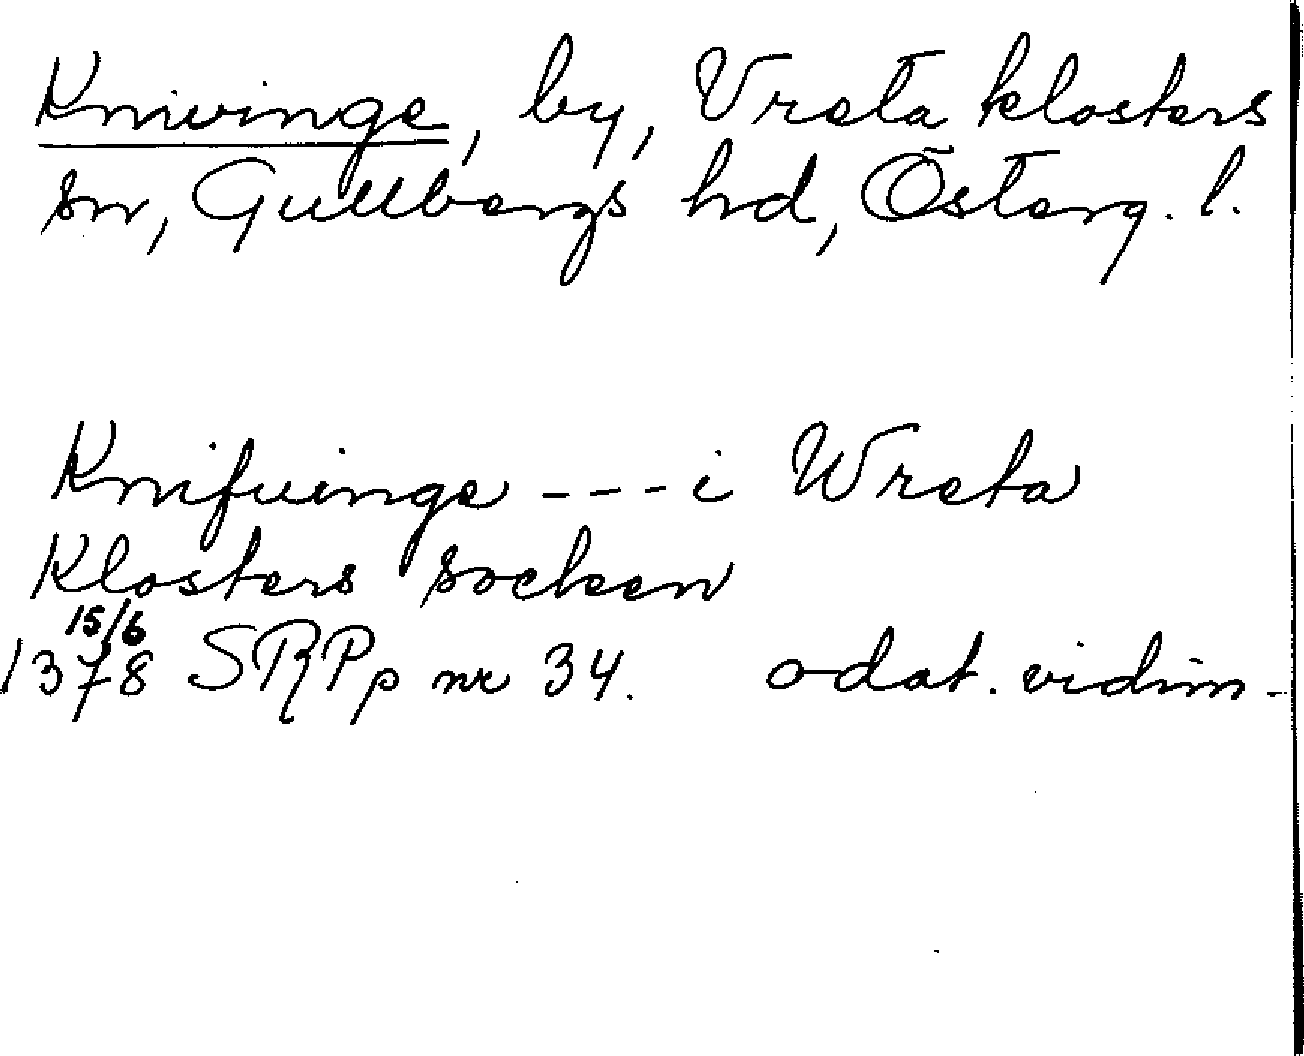 Knivinge, by, Vreta klosters
sn, Gullbergs hd, Österg. l.
Knifuinge --- i Wreta
Klosters socken
15/6
1378 SRPp nr 34. odat. vidim-